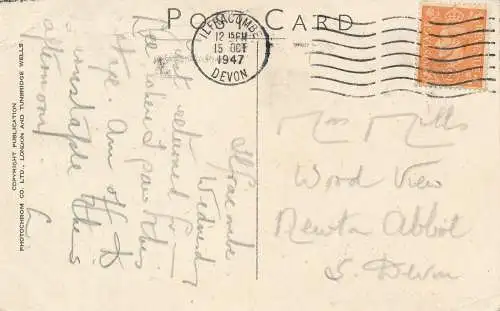 POST CARD
ILFRACOMBE
12 15 PM
15 OCT
1947
DEVON
COPYRIGHT PUBLICATION
PHOTOCHROM CO LTD., LONDON AND TUNBRIDGE WELLS
Ilfracombe.
Wednesday
Just returned from
Lee where I saw this
Am off to
Barnstaple this
afternoon
L.
Mills
Wood View
Newton Abbot
S. Devon